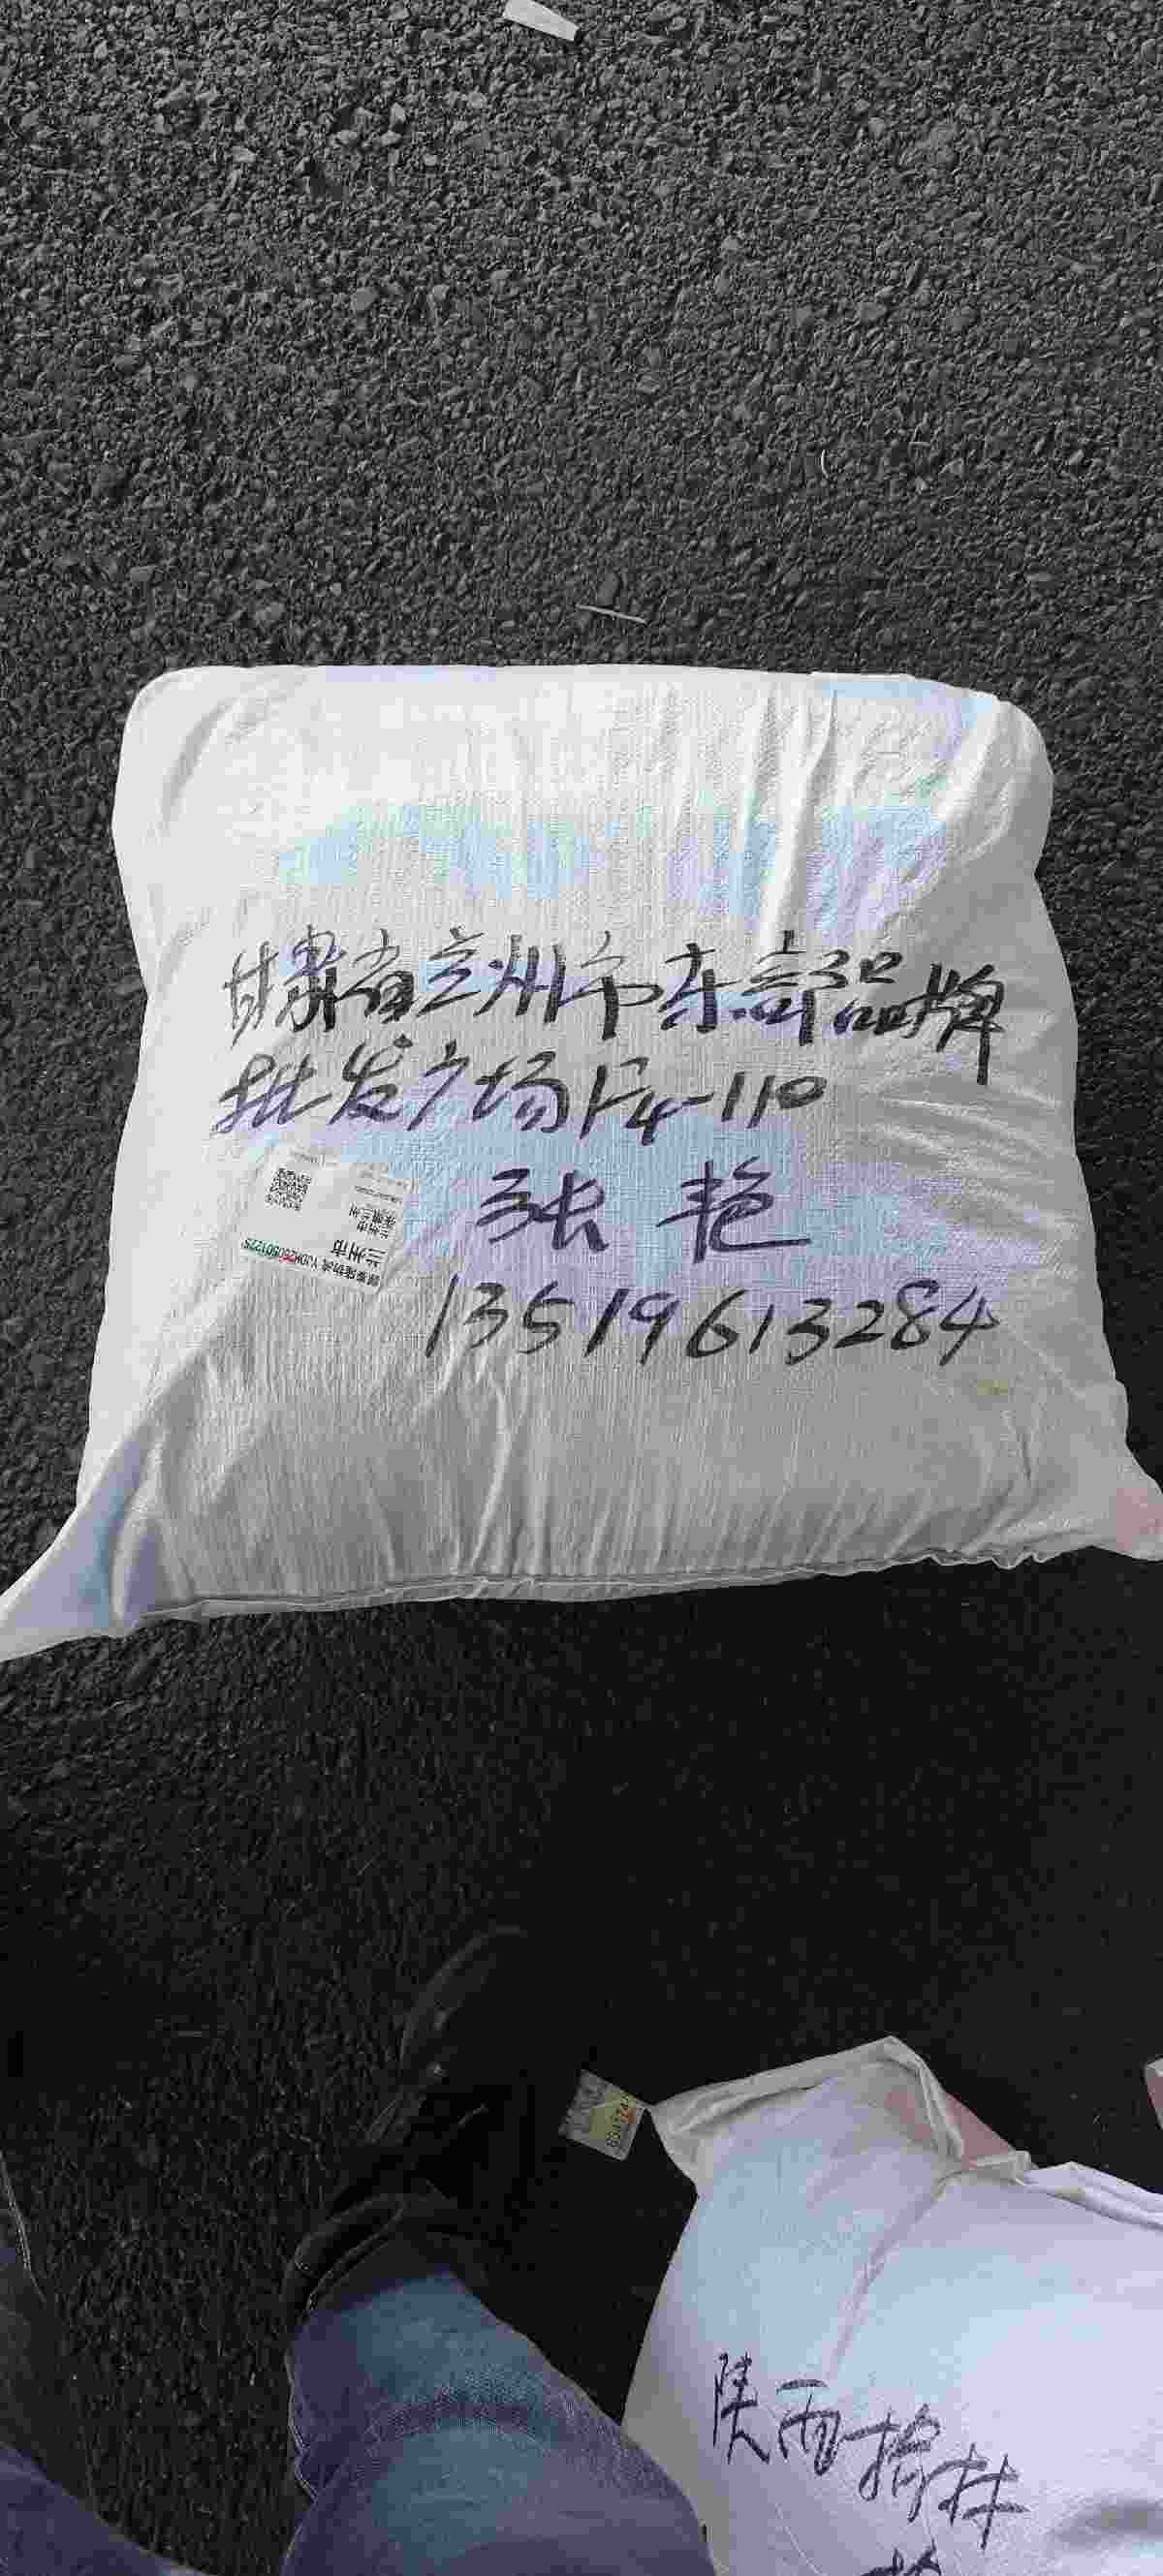 甘肃省兰州市东部品牌
批发广场F4-110
张 艳
13519613284
兰州市
陕西榆林